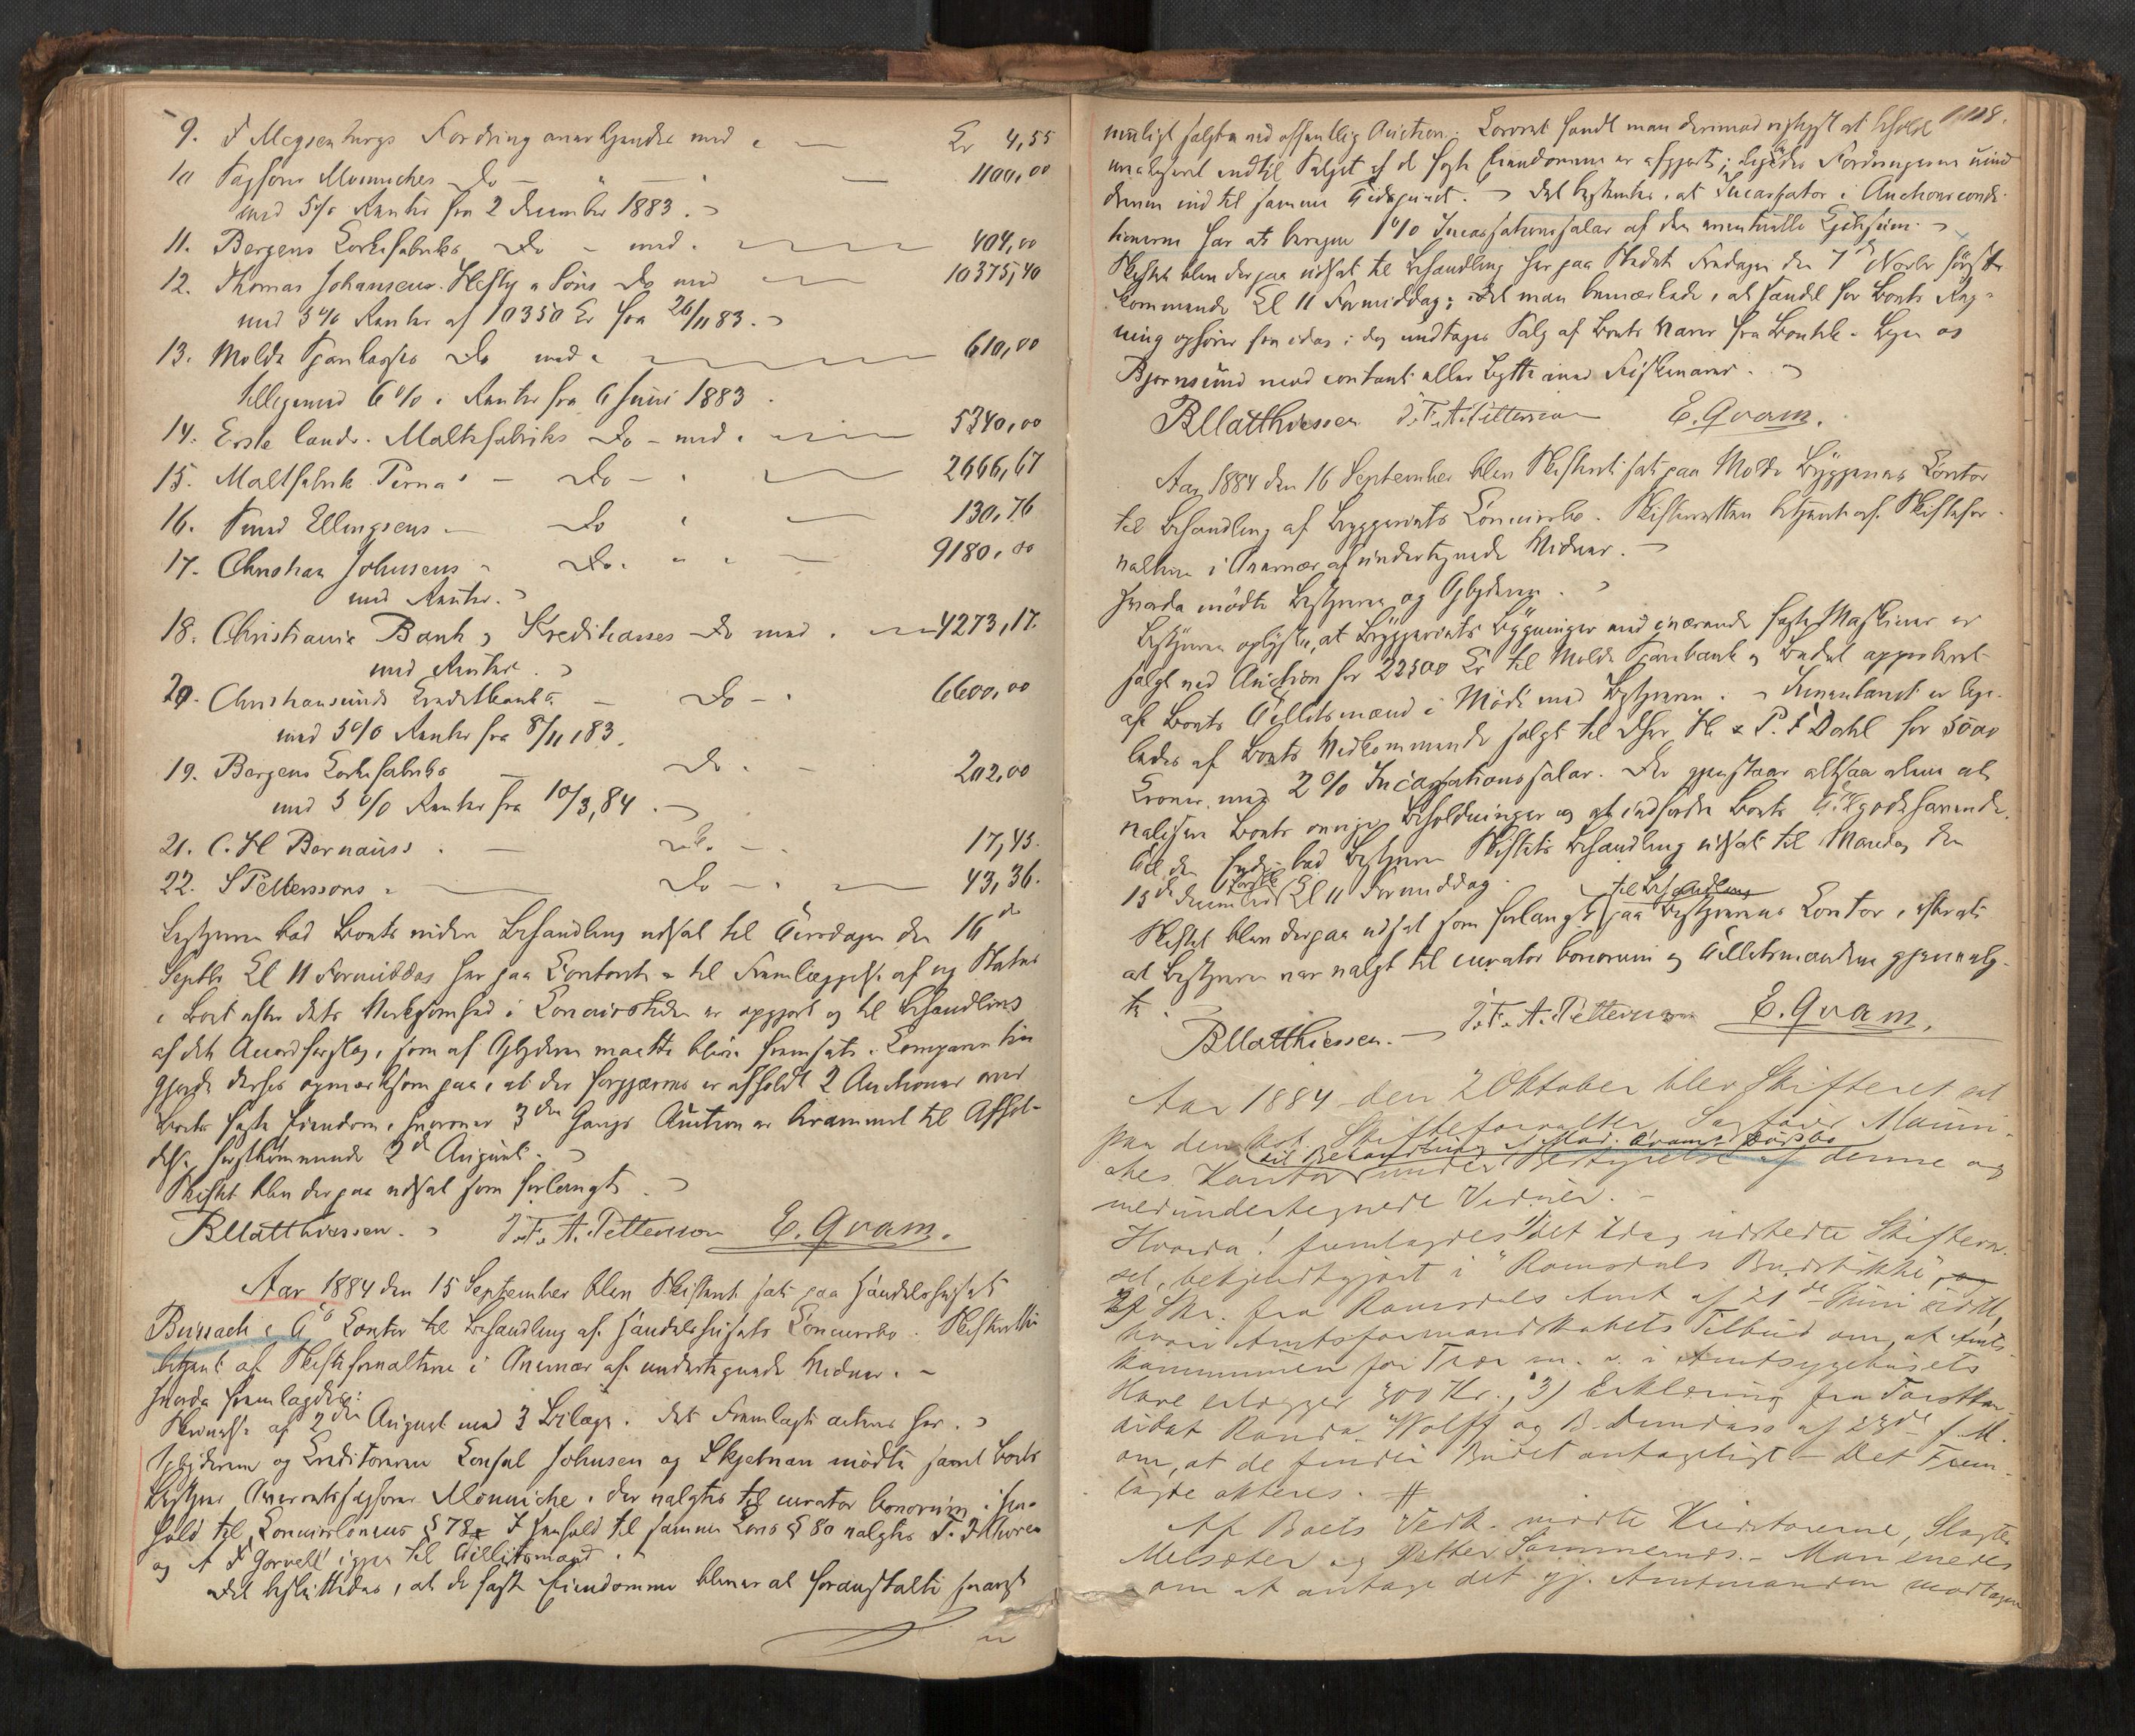 9. F Megsenburgs Fordring anerkjendes med " — Kr 4,55
10 Sagfører Mønniches Do — " — 1100,00
med 5% Renter fra 2 December 1883.
11. Bergens Korkefabriks Do - med. — 404,00
12. Thomas Johannesens Heftye & Søns Do med — 10375,40
med 5% Renter af 10350 Kr fra 26/11 83.
13. Molde Sparekasses Do med — 610,00
tilligemed 6% i Renter fra 6 Juni 1883.
14. Erste landr. Maltfabriks Do - med. — 5340,00
15. Maltfabrik Perna's - Do - — 2666,67
16. Knud Ellingsens — Do — 130,76
17. Christian Johnsens - Do. " " — 9180,00
med Renter.
18. Christiania Bank og Kreditkasses Do med. — 4273,17.
med Renter.
20. Christiansunds Creditbanks — Do - . 6600,00
med 5% Renter fra 8/11 83.
19. Bergens Korkefabriks — Do. — 202,00
med 5% Renter fra 10/3, 84.
21. C. H Bernaus's . — Do. — . 17,45.
22. S Petterssons . — Do — . — 43,36.
Bestyreren bad Boets videre Behandling udsat til Tirsdagen den 16de
Septbr Kl 11 Formiddag her paa Kontoret - til Fremlæggelse af ny Status
i Boet efter dets Virksomhed i Concurstiden er opgjort og til Behandling
af det Accordforslag, som af Gjbyderen maatte blive fremsat. Comparenten
gjorde derhos opmærksom paa, at der forgjæves er afholdt 2 Auctioner over
Boets faste Eiendom, hvorover 3die Gangs Auction er berammet til Afhol-
delse førstkommende 2den August.
Skiftet blev derpaa udsat som forlangt.
B Matthiessen. J. F. A. Pettersson E. Qvam.
Aar 1884 den 15 September blev Skifteret sat paa Handelshuset
Bussach & Co Kontor til Behandling af Handelshusets Concursbo. Skifteretten
betjent af Skifteforvalteren i Overvær af undertegnede Vidner. -
Hvorda fremlagdes:
Skrivelse af 2den August med 3 Bilage. Det Fremlagte acteres her.
Gjbyderen og Creditorerne Konsul Johnsen og Skjelnan mødte samt Boets
Bestyrer Overretssagfører Mønniche, der valgtes til curator bonorum i Hen-
hold til Konkurslovens § 78. I Henhold til samme Lovs § 80 valgtes
og A F Gørvell igjen til Tillidsmænd.
Det besluttedes, at de faste Eiendomme bliver at foranstalte snarest
mu-
108.
muligt solgte ved offentlig Auction. Løsøret fandt man derimod rigtigst at beholde
urealiseret indtil Salget af de faste Eiendomme er afgjort; ligesaa Fordringerne und-
dragen ind til samme Tidspunct. Det bestemtes, at Incassator i Auctionscondi-
tionerne har at beregne 1% Incassationssalar af den eventuelle Kjøbesum.
Skiftet blev derpaa udsat til Behandling her paa Stedet Fredagen den 7de Novbr først-
kommende Kl 11 Formiddag; idet man bemærkede, at Handel for Boets Reg-
ning ophører fra idag; dog undtages Salg af Boets Varer fra Boutik -
Bjørnsund mod contant eller Bytte mod Fiskevarer.
B Matthiessen J. F. A. Pettersson E. Qvam.
Aar 1884 den 16 September blev Skifteret sat paa Molde Bryggeries Kontor
til Behandling af Bryggeriets Concursbo. Skifteretten betjent af Skiftefor-
valteren i Overvær af undertegnede Vidner.
Hvorda mødte Bestyreren og Gjbyderen.
Bestyreren oplyste, at Bryggeriets Bygninger med iværende faste Maskiner er
solgt ved Auction for 22500 Kr til Molde Sparebank og Budet approberet
af Boets Tillidsmænd i Møde med Bestyreren. - Inventariet er lige-
ledes af Boets Vedkommende solgt til DHrr H & P. F Dahl for 5000
Kroner med 2% Incassationssalar. Der gjenstaar altsaa alene at
realisere Boets øvrige Beholdninger og at indfordre Boets Tilgodehavende.
Til den Ende bad Bestyreren Skiftets Behandling udsat til Mandag den
15de December Førstk. Kl 11 Formiddag.
Skiftet blev derpaa udsat som forlangt til Behandling paa Bestyrerens Kontor, efterat
at Bestyreren var valgt til curator bonorum og Tillidsmændene gjenvalg-
te.
B Matthiessen. — J. F. A. Pettersson E. Qvam.
Aar 1884 den 2 Oktober blev Skifteret sat
paa den kst. Skifteforvalter Sagfører Mønni-
ches Kontor til Behandling af under Bestyrelse af denne og
medundertegnede Vidner. -
Hvorda! fremlagdes 1) det idag udstedte Skiftevar-
sel, bekjendtgjort i "Romsdals Budstikke", og
2) Skr. fra Romsdals Amt af 21de Juni sidstl,
hvori Amtsformandskabets Tilbud om, at Amts-
kommunen for Træer m. v. i Amtsygehusets
Have erlægger 300 Kr.; 3) Erklæring fra Forstkan-
didat Randa Wolff og B. Dundass af 23de f. M.
om, at de finder Budet antageligt - Det Frem-
lagte akteres. #
Af Boets Vedk. mødte Kreditorerne, Slagter
Melsæter og Petter Sommernes. - Man enedes
om at antage det gj. Amtmanden modtagne